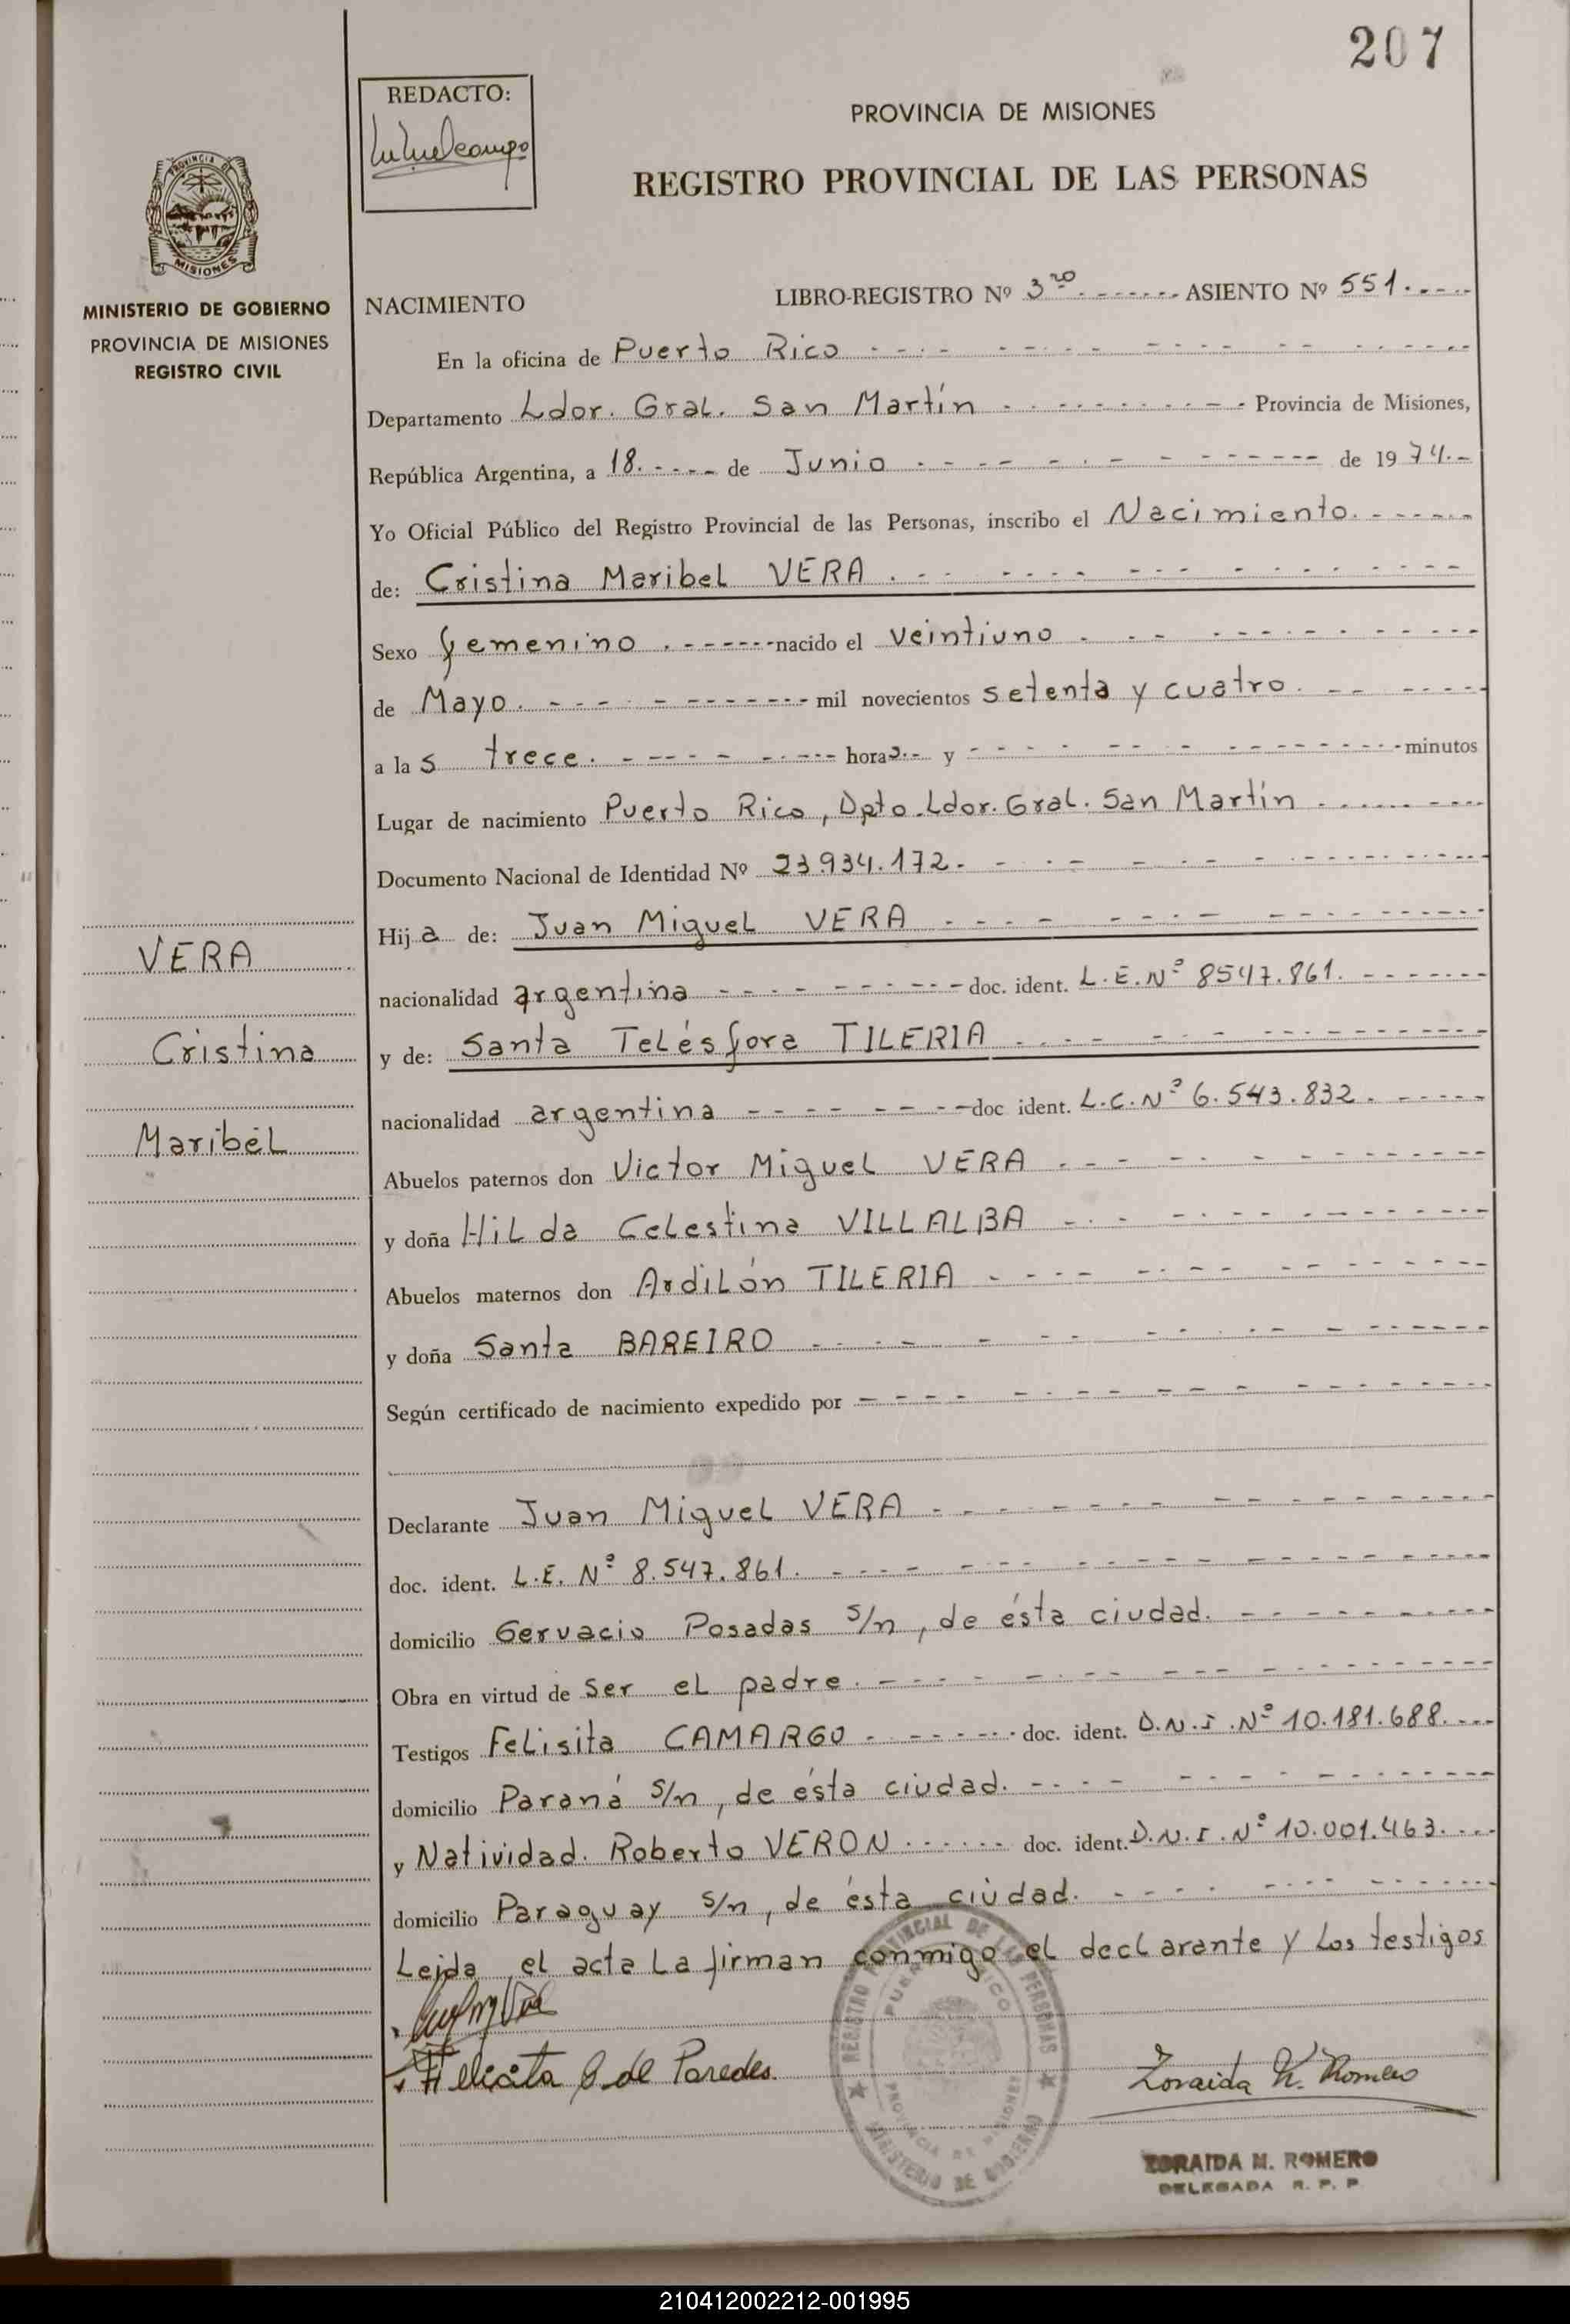 207
REDACTO:
PROVINCIA DE MISIONES
REGISTRO PROVINCIAL DE LAS PERSONAS
PROVINCIA DE
MISIONES
MINISTERIO DE GOBIERNO
PROVINCIA DE MISIONES
REGISTRO CIVIL
NACIMIENTO LIBRO-REGISTRO Nº 3ro. ASIENTO Nº 551.
En la oficina de Puerto Rico
Departamento Ldor. Gral. San Martín Provincia de Misiones,
República Argentina, a 18. de Junio de 1974.
Yo Oficial Público del Registro Provincial de las Personas, inscribo el Nacimiento.
de: Cristina Maribel VERA.
Sexo femenino. nacido el veintiuno
de Mayo. mil novecientos setenta y cuatro.
a las trece. horas. y minutos
Lugar de nacimiento Puerto Rico, Dpto. Ldor. Gral. San Martín
Documento Nacional de Identidad Nº 23.934.172.
Hija de: Juan Miguel VERA
VERA
nacionalidad argentina doc. ident. L.E. Nº 8547.861.
Cristina
y de: Santa Telésfora TILERIA
nacionalidad argentina doc ident. L.C. Nº 6.543.832.
Maribel
Abuelos paternos don Victor Miguel VERA
y doña Hilda Celestina VILLALBA
Abuelos maternos don Ardilón TILERIA
y doña Santa BAREIRO
Según certificado de nacimiento expedido por
Declarante Juan Miguel VERA
doc. ident. L.E. Nº 8.547.861.
domicilio Gervacio Posadas s/n, de ésta ciudad.
Obra en virtud de ser el padre.
Testigos Felisita CAMARGO doc. ident. D.N.I. Nº 10.181.688.
domicilio Paraná s/n, de ésta ciudad.
y Natividad Roberto VERON doc. ident. D.N.I. Nº 10.001.463.
domicilio Paraguay s/n, de ésta ciudad.
Leida el acta la firman conmigo el declarante y los testigos
Felicita C. de Paredes.
REGISTRO PROVINCIAL DE LAS PERSONAS
PUERTO RICO
PROVINCIA DE MISIONES
MINISTERIO DE GOBIERNO
Zoraida M. Romero
ZORAIDA M. ROMERO
DELEGADA R. P. P.
210412002212-001995